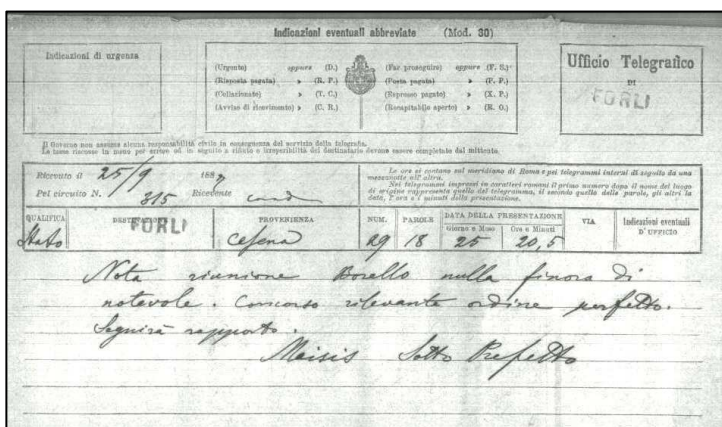 Indicazioni eventuali abbreviate (Mod. 30)
Indicazioni di urgenza
(Urgente) oppure (D.)
(Risposta pagata) » (R. P.)
(Collazionato) » (T. C.)
(Avviso di ricevimento) » (C. R.)
(Far proseguire) oppure (F. S.)
(Posta pagata) » (P. P.)
(Espresso pagato) » (X. P.)
(Recapitabile aperto) » (R. O.)
Ufficio Telegrafico
DI
FORLI
Il Governo non assume alcuna responsabilità civile in conseguenza del servizio della telegrafia.
Le tasse riscosse in meno per errore od in seguito a rifiuto o irreperibilità del destinatario devono essere completate dal mittente.
Ricevuto il 25/9 188
Pel circuito N. 315 Ricevente
Le ore si contano sul meridiano di Roma e pei telegrammi interni di seguito da una
mezzanotte all'altra.
Nei telegrammi impressi in caratteri romani il primo numero dopo il nome del luogo
di origine rappresenta quello del telegramma, il secondo quello delle parole, gli altri la
data, l'ora e i minuti della presentazione.
QUALIFICA DESTINAZIONE PROVENIENZA NUM. PAROLE DATA DELLA PRESENTAZIONE VIA Indicazioni eventuali
Giorno e Mese Ore e Minuti D'UFFICIO
Stato FORLI Cesena 29 18 25 20,5
Nota riunione Borello nulla finora di
notevole. Concorso rilevante ordine perfetto.
Seguirà rapporto.
Sotto Prefetto